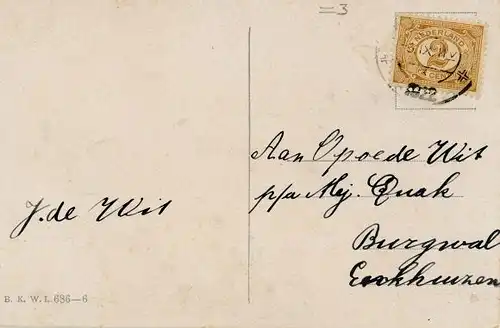 =3
NEDERLAND
2
CENT
1922
Aan Opoede Wit
p/a Mej. Quak
J. de Wit
Burgwal
Enkhuizen
B. K. W. I. 686—6